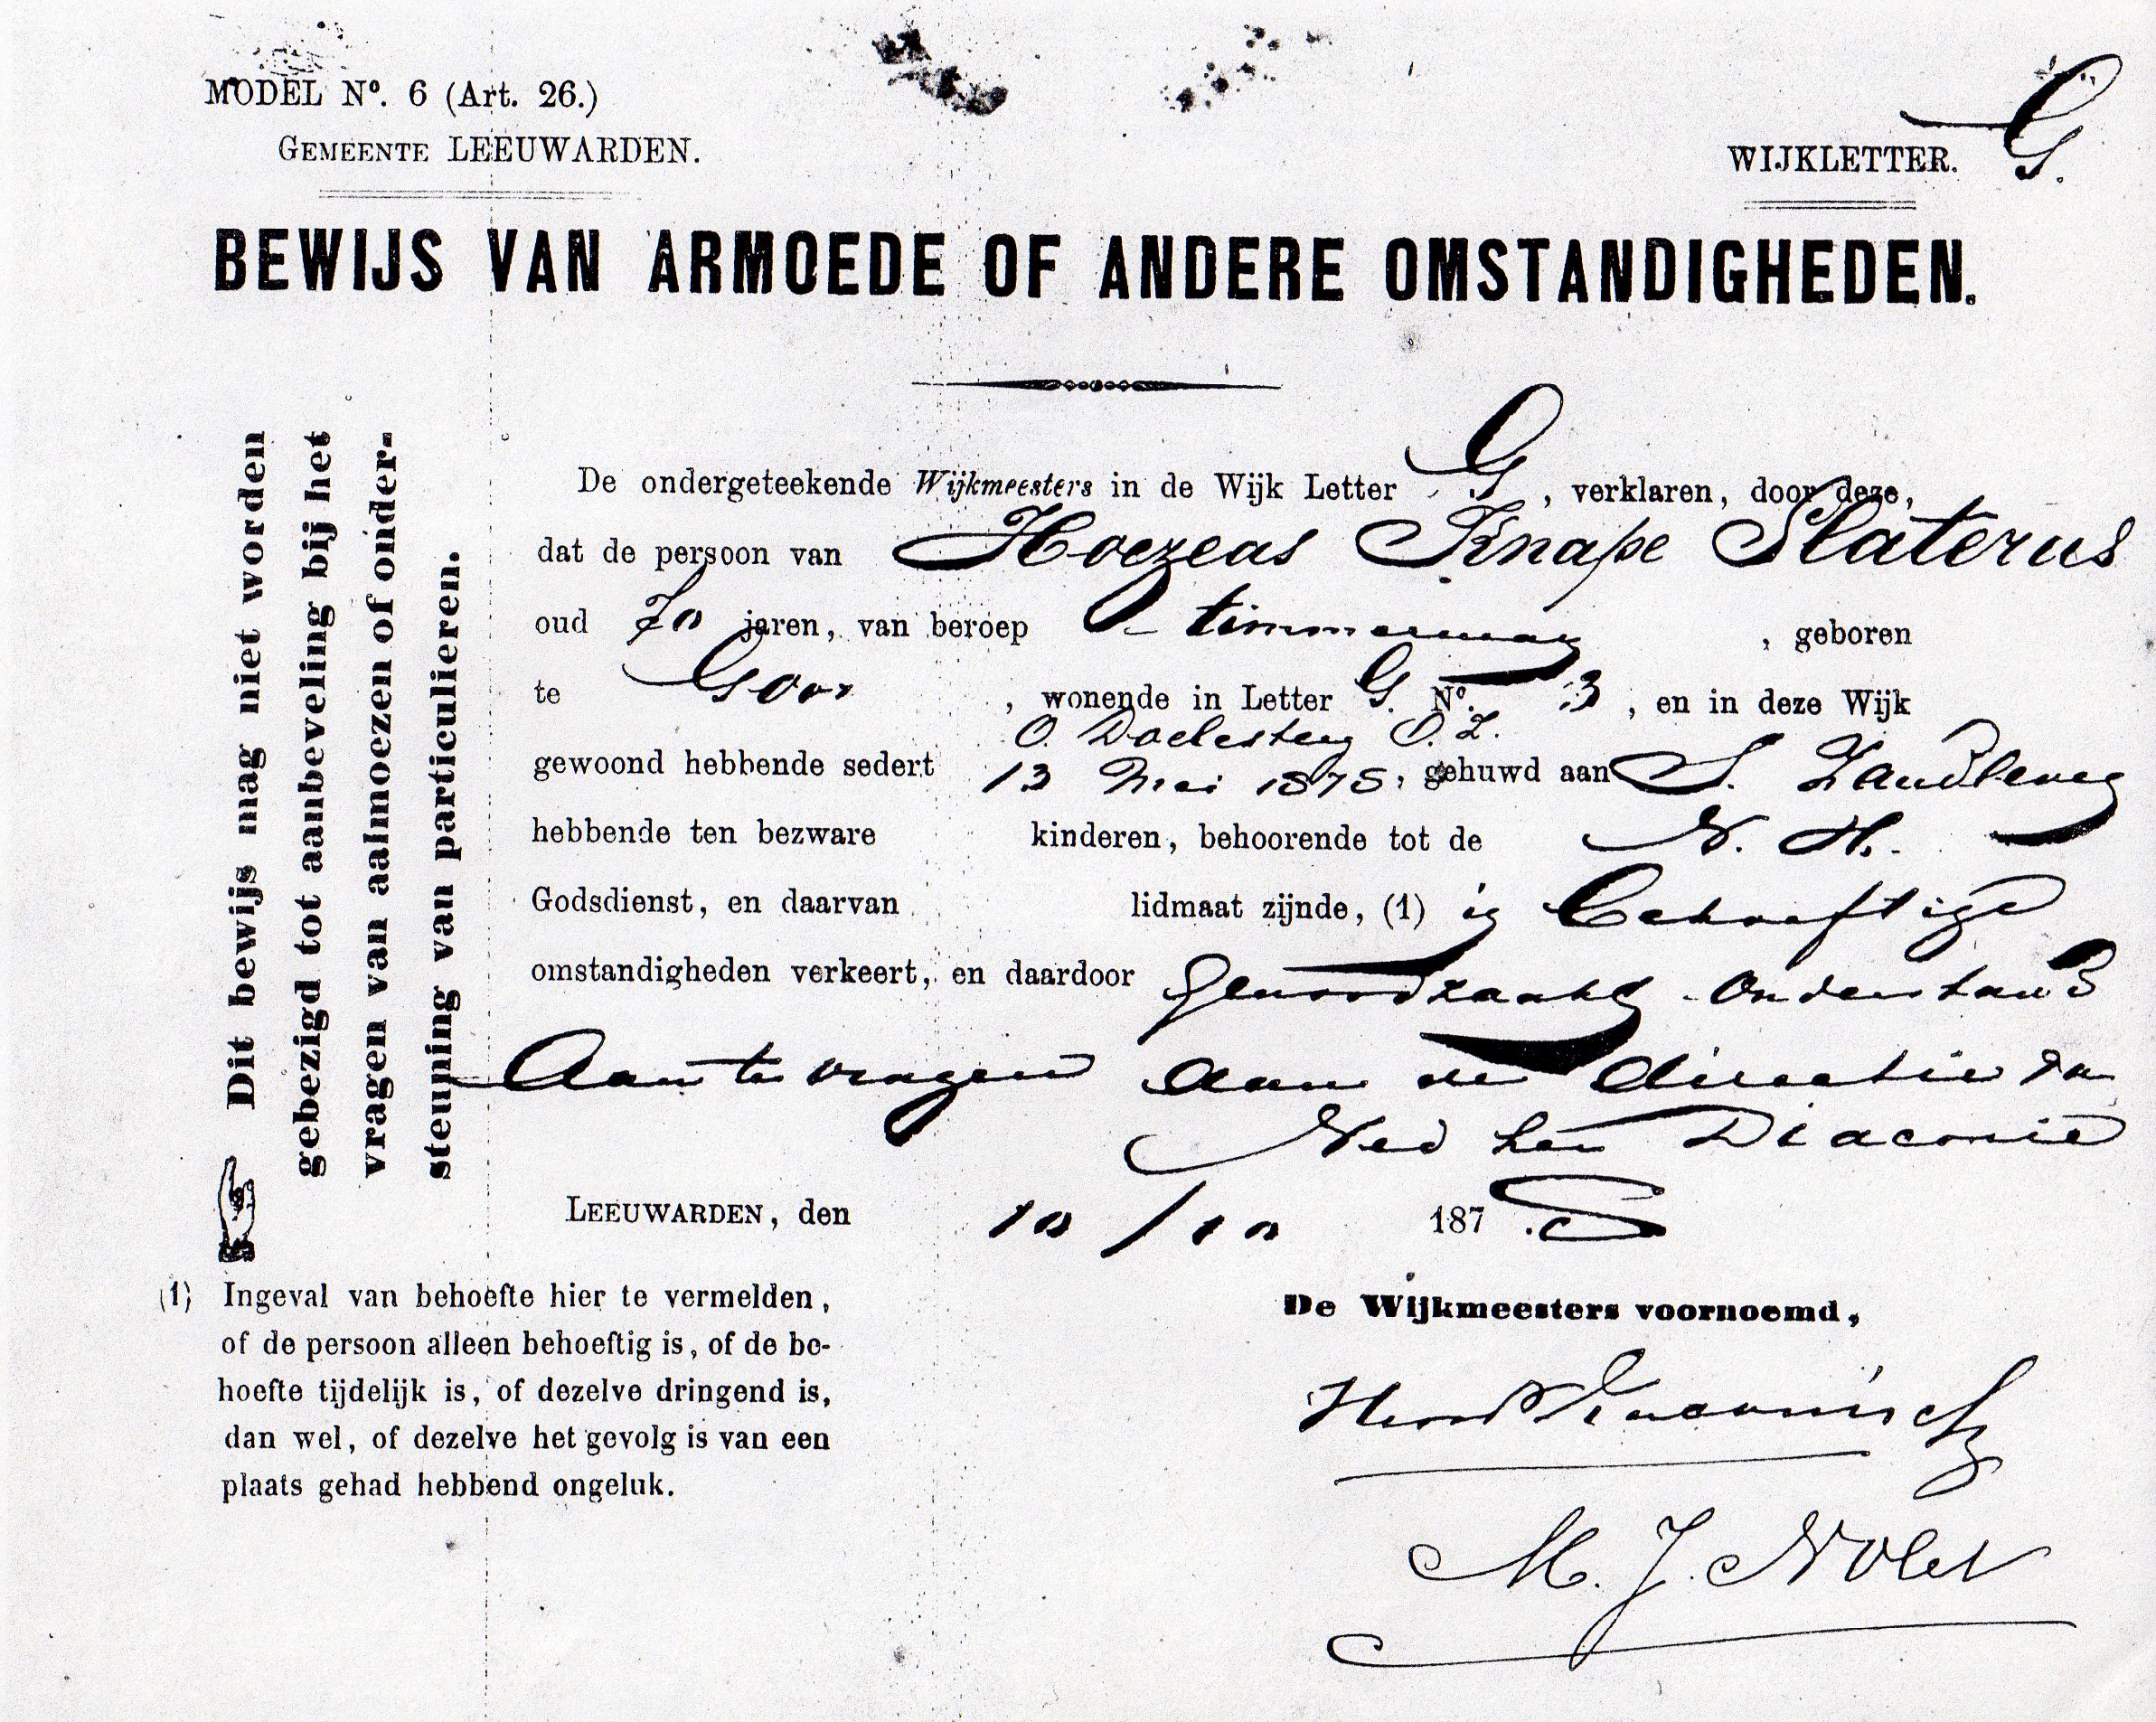 MODEL Nº. 6 (Art. 26.)
GEMEENTE LEEUWARDEN.
WIJKLETTER. G.
BEWIJS VAN ARMOEDE OF ANDERE OMSTANDIGHEDEN.
Dit bewijs mag niet worden
gebezigd tot aanbeveling bij het
vragen van aalmoezen of onder-
steuning van particulieren.
De ondergeteekende Wijkmeesters in de Wijk Letter G, verklaren, door deze,
dat de persoon van Hoezeas Knape Slaterus
oud 70 jaren, van beroep timmerman, geboren
te Goor, wonende in Letter G. Nº. 3, en in deze Wijk
O. Doelesteeg O.Z.
gewoond hebbende sedert 13 Mei 1875, gehuwd aan S.
hebbende ten bezware kinderen, behoorende tot de N. H.
Godsdienst, en daarvan lidmaat zijnde, (1) in Behoeftige
omstandigheden verkeert, en daardoor genoodzaakt Onderstand
Aan te vragen aan de directie van
Ned her Diaconie
LEEUWARDEN, den 10/10 187
(1) Ingeval van behoefte hier te vermelden,
of de persoon alleen behoeftig is, of de be-
hoefte tijdelijk is, of dezelve dringend is,
dan wel, of dezelve het gevolg is van een
plaats gehad hebbend ongeluk.
De Wijkmeesters voornoemd,
M. J. Nolet